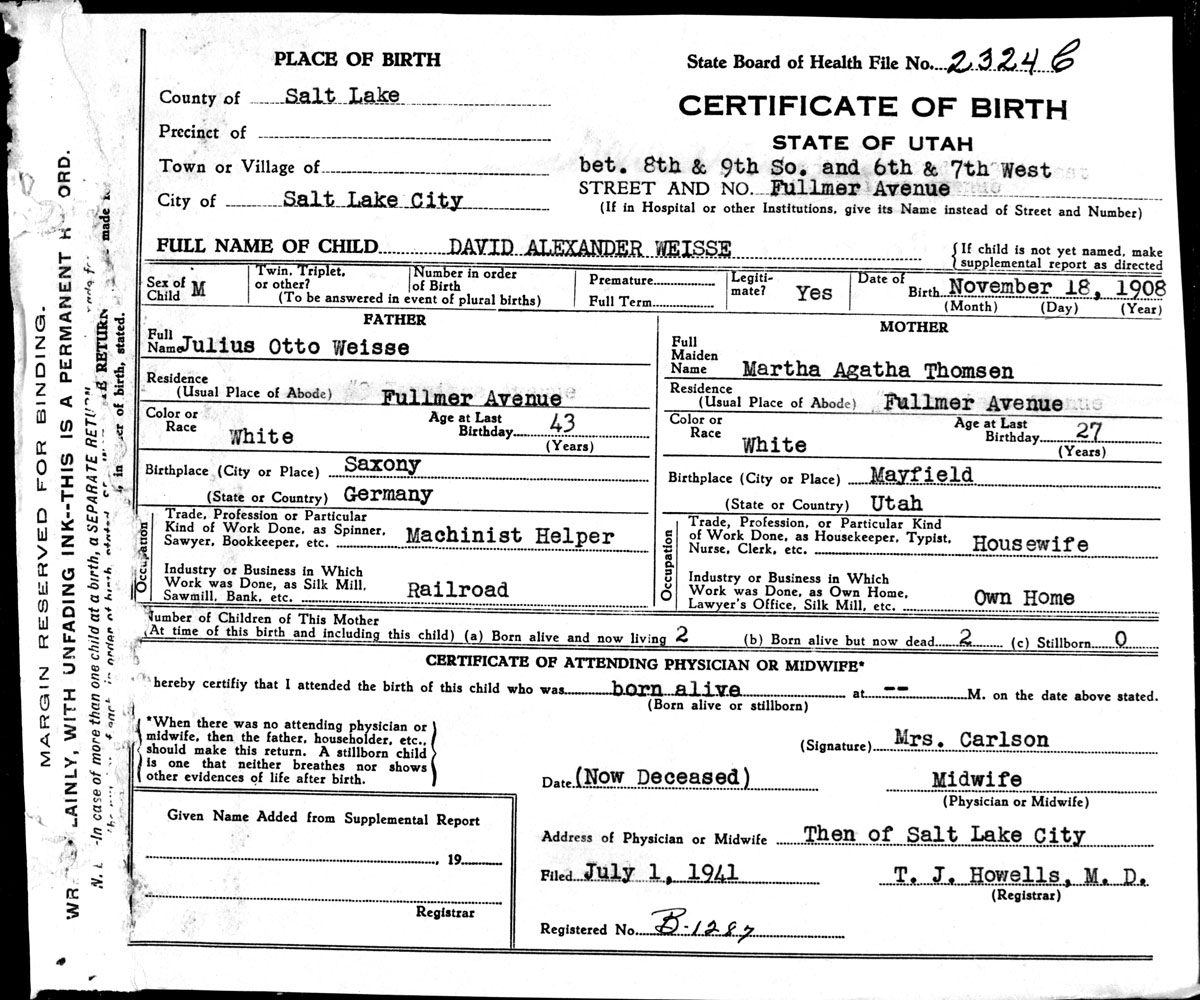 PLACE OF BIRTH
County of Salt Lake
Precinct of
Town or Village of
City of Salt Lake City
State Board of Health File No. 2324 C
CERTIFICATE OF BIRTH
STATE OF UTAH
bet. 8th & 9th So. and 6th & 7th West
STREET AND NO. Fullmer Avenue
(If in Hospital or other Institutions, give its Name instead of Street and Number)
FULL NAME OF CHILD DAVID ALEXANDER WEISSE
{If child is not yet named, make
supplemental report as directed
Sex of Child M
Twin, Triplet, or other?
Number in order of Birth
(To be answered in event of plural births)
Premature
Full Term
Legitimate? Yes
Date of Birth November 18, 1908
(Month) (Day) (Year)
FATHER
Full Name Julius Otto Weisse
Residence
(Usual Place of Abode) Fullmer Avenue
Color or Race White
Age at Last Birthday 43
(Years)
Birthplace (City or Place) Saxony
(State or Country) Germany
Occupation
Trade, Profession or Particular
Kind of Work Done, as Spinner,
Sawyer, Bookkeeper, etc. Machinist Helper
Industry or Business in Which
Work was Done, as Silk Mill,
Sawmill, Bank, etc. Railroad
MOTHER
Full
Maiden
Name Martha Agatha Thomsen
Residence
(Usual Place of Abode) Fullmer Avenue
Color or Race White
Age at Last Birthday 27
(Years)
Birthplace (City or Place) Mayfield
(State or Country) Utah
Occupation
Trade, Profession, or Particular Kind
of Work Done, as Housekeeper, Typist,
Nurse, Clerk, etc. Housewife
Industry or Business in Which
Work was Done, as Own Home,
Lawyer's Office, Silk Mill, etc. Own Home
Number of Children of This Mother
(At time of this birth and including this child) (a) Born alive and now living 2 (b) Born alive but now dead 2 (c) Stillborn 0
CERTIFICATE OF ATTENDING PHYSICIAN OR MIDWIFE*
hereby certifiy that I attended the birth of this child who was born alive at -- M. on the date above stated.
(Born alive or stillborn)
*When there was no attending physician or
midwife, then the father, householder, etc.,
should make this return. A stillborn child
is one that neither breathes nor shows
other evidences of life after birth.
(Signature) Mrs. Carlson
Date (Now Deceased) Midwife
(Physician or Midwife)
Given Name Added from Supplemental Report
, 19
Registrar
Address of Physician or Midwife Then of Salt Lake City
Filed July 1, 1941 T. J. Howells, M. D.
(Registrar)
Registered No. B-1287
MARGIN RESERVED FOR BINDING.
WR AINLY, WITH UNFADING INK--THIS IS A PERMANENT R ORD.
N. -In case of more than one child at a birth, a SEPARATE RETURN
E RETURN made
in er of birth, stated.